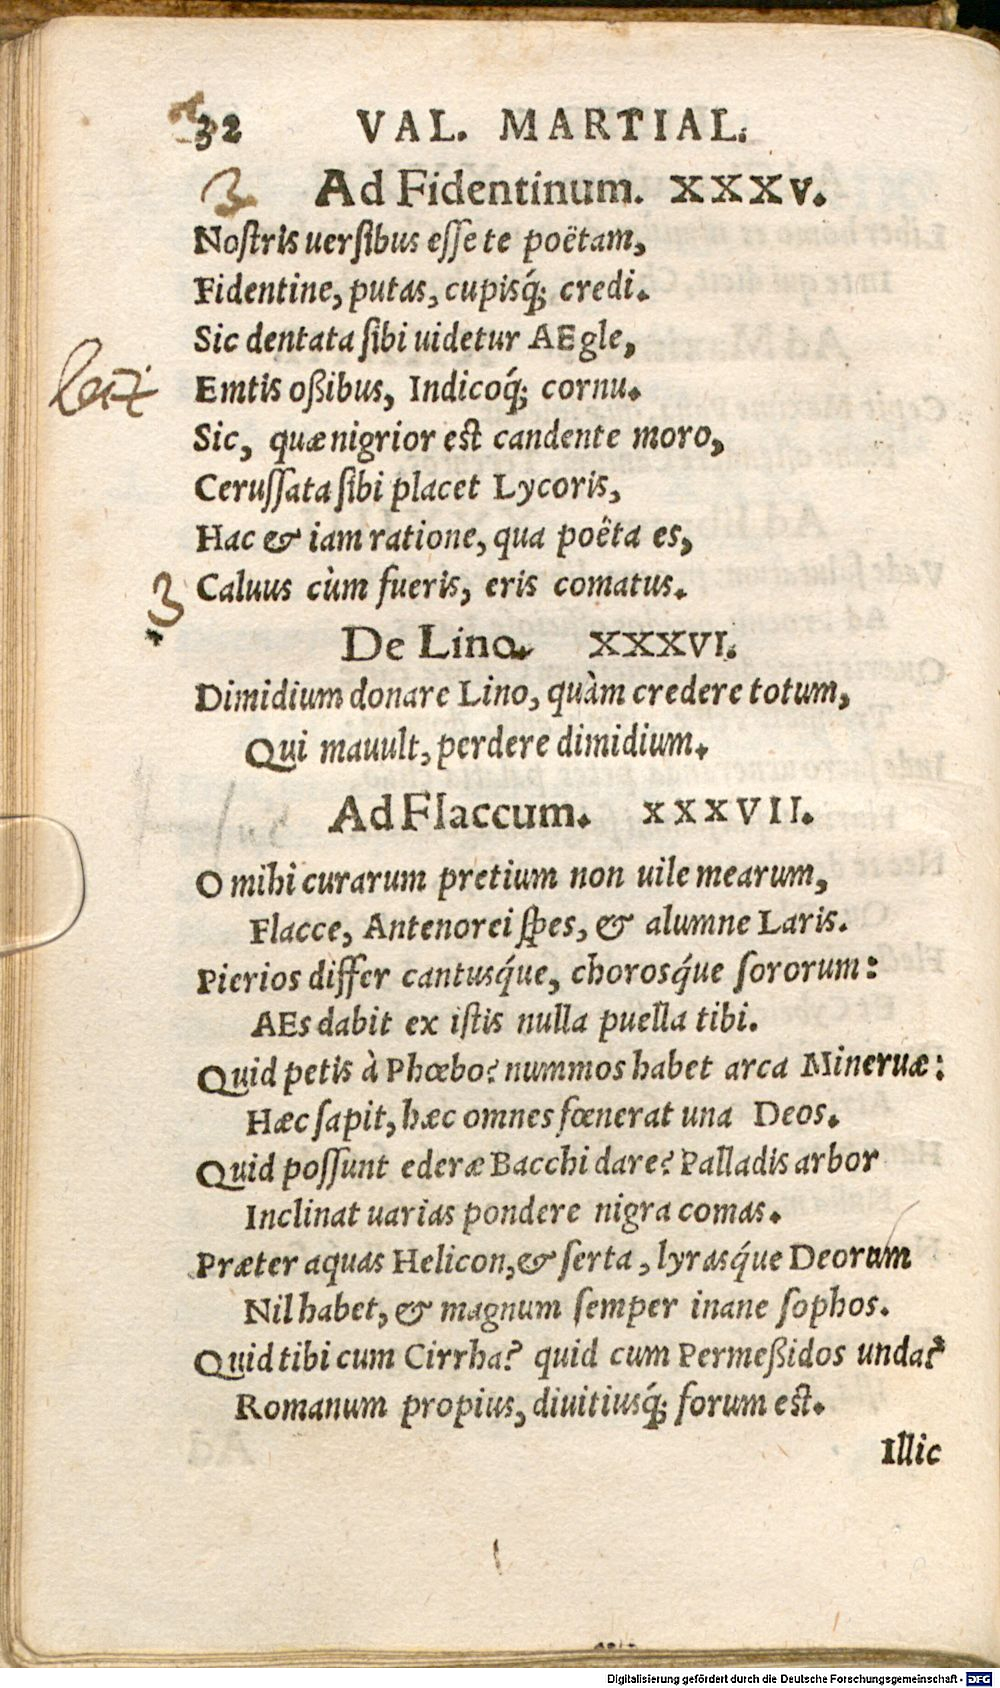 32 VAL. MARTIAL.
3 Ad Fidentinum. XXXV.
Nostris uersibus esse te poëtam,
Fidentine, putas, cupisq́; credi.
Sic dentata sibi uidetur AEgle,
Emtis oßibus, Indicoq́; cornu.
Sic, quæ nigrior est candente moro,
Cerussata sibi placet Lycoris,
Hac & iam ratione, qua poëta es,
3 Caluus cùm fueris, eris comatus.
De Lino. XXXVI.
Dimidium donare Lino, quàm credere totum,
Qui mauult, perdere dimidium.
Ad Flaccum. XXXVII.
O mihi curarum pretium non uile mearum,
Flacce, Antenorei spes, & alumne Laris.
Pierios differ cantusq́ue, chorosq́ue sororum:
AEs dabit ex istis nulla puella tibi.
Quid petis à Phœbo? nummos habet arca Mineruæ:
Hæc sapit, hæc omnes fœnerat una Deos.
Quid possunt ederæ Bacchi dare? Palladis arbor
Inclinat uarias pondere nigra comas.
Præter aquas Helicon, & serta, lyrasq́ue Deorum
Nil habet, & magnum semper inane sophos.
Quid tibi cum Cirrha? quid cum Permeßidos unda?
Romanum propius, diuitiusq́; forum est.
Illic
Digitalisierung gefördert durch die Deutsche Forschungsgemeinschaft - DFG